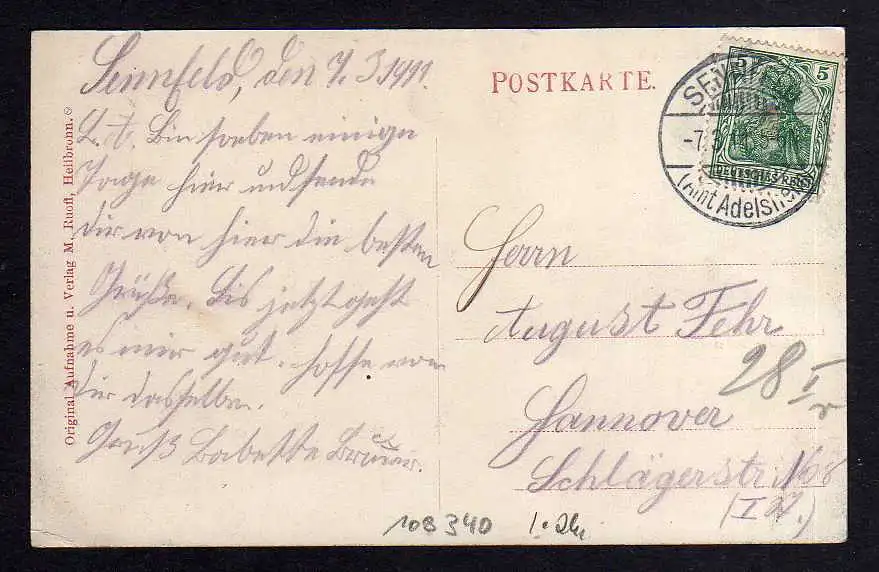 Sennfeld, den 7. 3 1911.
L. A. Bin soeben einige
Tage hier und sende
dir von hier die besten
Grüße. Bis jetzt geht
es mir gut. hoffe von
dir dasselbe.
Gruß Babette
Original Aufnahme u. Verlag M. Ruoff, Heilbronn.
POSTKARTE.
5
DEUTSCHES REICH
(Amt Adelsh
Herrn
August Fehr
28 I
Hannover
Schlägerstr. No 8
108340